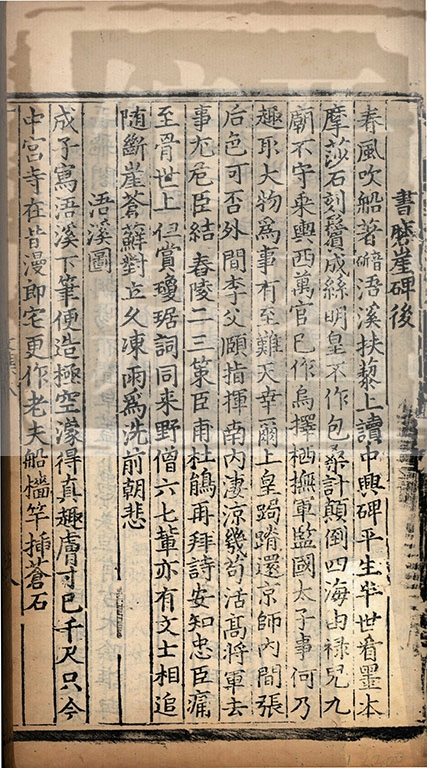 書磨崖碑後
春風吹船著䃭浯溪扶藜上讀中興碑平生半世看墨本
摩莎石刻鬢成絲明皇不作包桒計顛倒四海由禄兒九
廟不守乘輿西萬官已作烏擇栖撫軍監國太子事何乃
趣取大物爲事有至難天幸爾上皇跼蹐還京師内間張
后色可否外間李父頤指揮南内凄涼幾苟活髙將軍去
事尤危臣結舂陵二三策臣甫杜鵑再拜詩安知忠臣痛
至骨世上但賞瓊琚詞同来野僧六七軰亦有文士相追
随斷崖蒼蘚對立久凍雨爲洗前朝悲
浯溪圖
成子寫浯溪下筆便造極空濛得真趣膚寸已千尺只今
中宮寺在昔漫郎宅更作老夫船檣竿揷蒼石